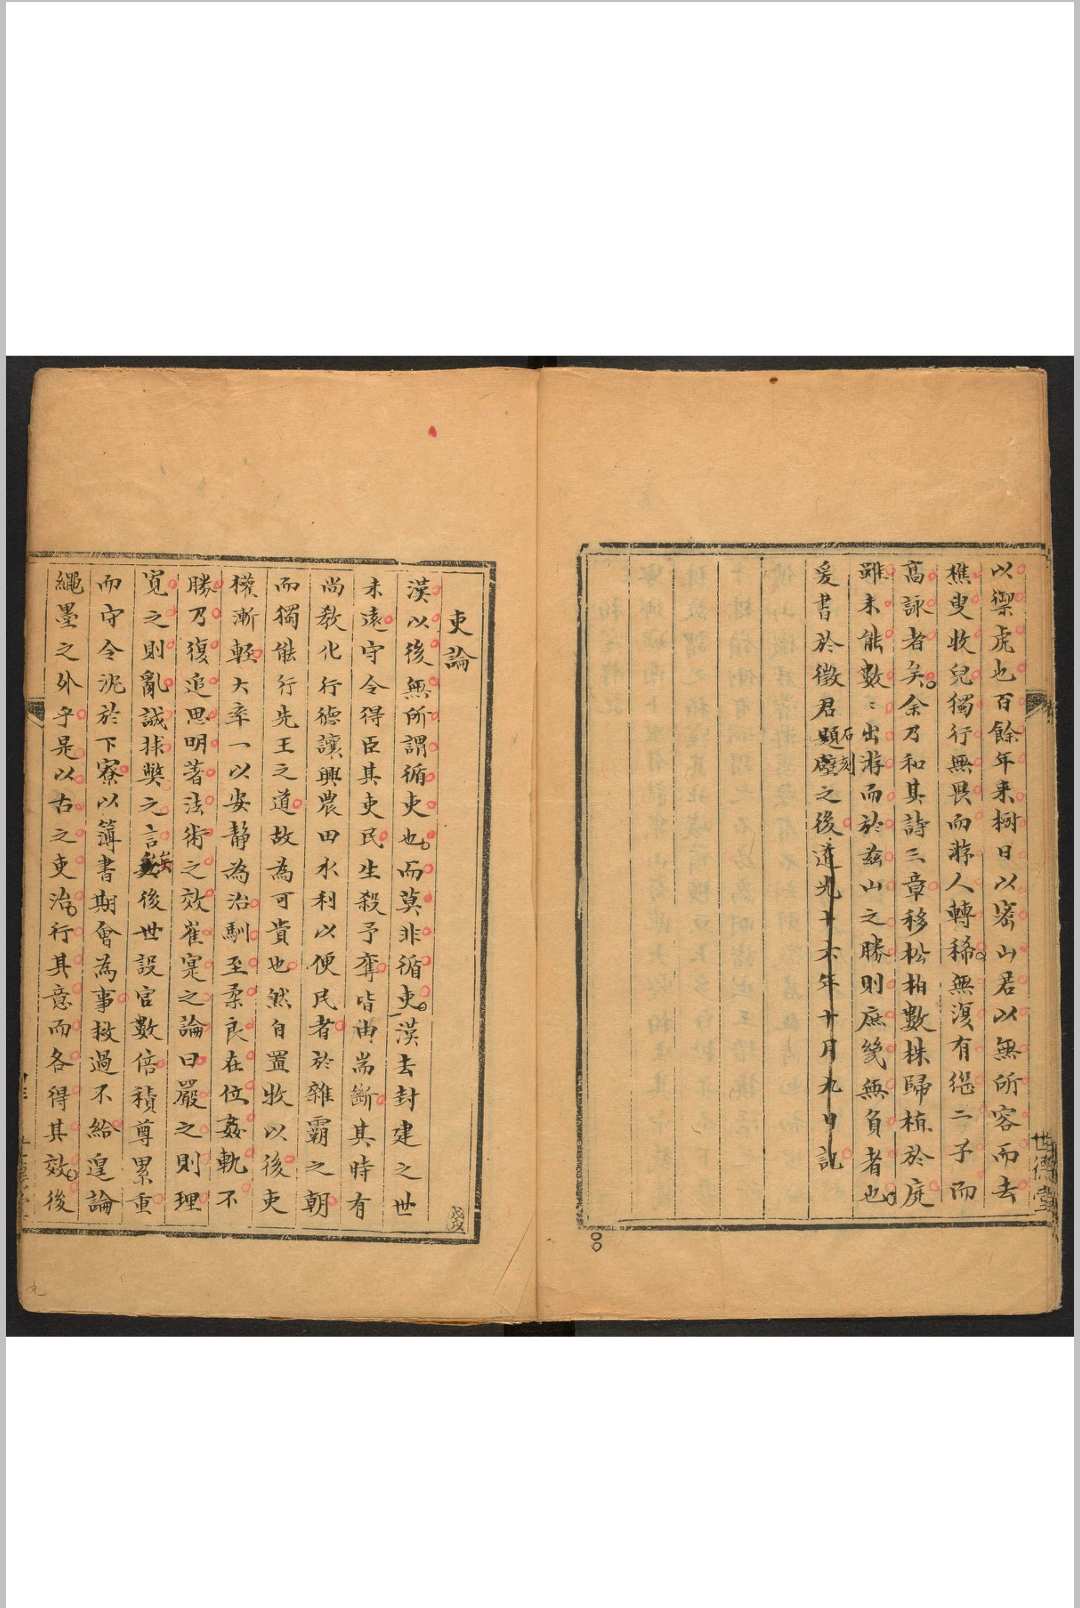 以禦虎也百餘年來樹日以密山君以無所容而去
樵叟牧兒獨行無畏而游人轉稀無復有從二子而
高詠者矣余乃和其詩三章移松柏數株歸植於庭
雖未能數數出游而於茲山之勝則庶幾無負者也
爰書於徵君題壁石刻之後道光十六年十月九日記
世德堂
吏論
漢以後無所謂循吏也而莫非循吏漢去封建之世
未遠守令得臣其吏民生殺予奪皆由耑斷其時有
尚教化行德讓興農田水利以便民者於雜霸之朝
而獨能行先王之道故為可貴也然自置牧以後吏
權漸輕大率一以安靜為治馴至柔良在位姦軌不
勝乃復追思明著法術之效崔寔之論曰嚴之則理
寬之則亂誠捄獘之言矣後世設官數倍積尊累重
而守令沈於下寮以簿書期會為事救過不給遑論
繩墨之外乎是以古之吏治行其意而各得其效後